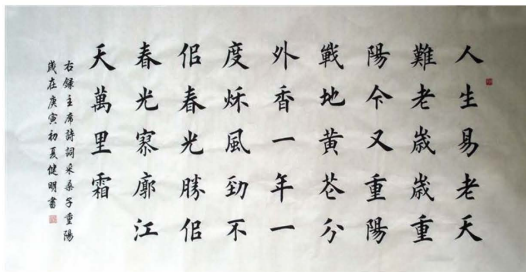 人生易老天
難老歲歲重
陽今又重陽
戰地黃花分
外香一年一
度秋風勁不
佀春光勝佀
春光寥廓江
天萬里霜
右錄主席詩詞采桑子重陽
歲在庚寅初夏健明書